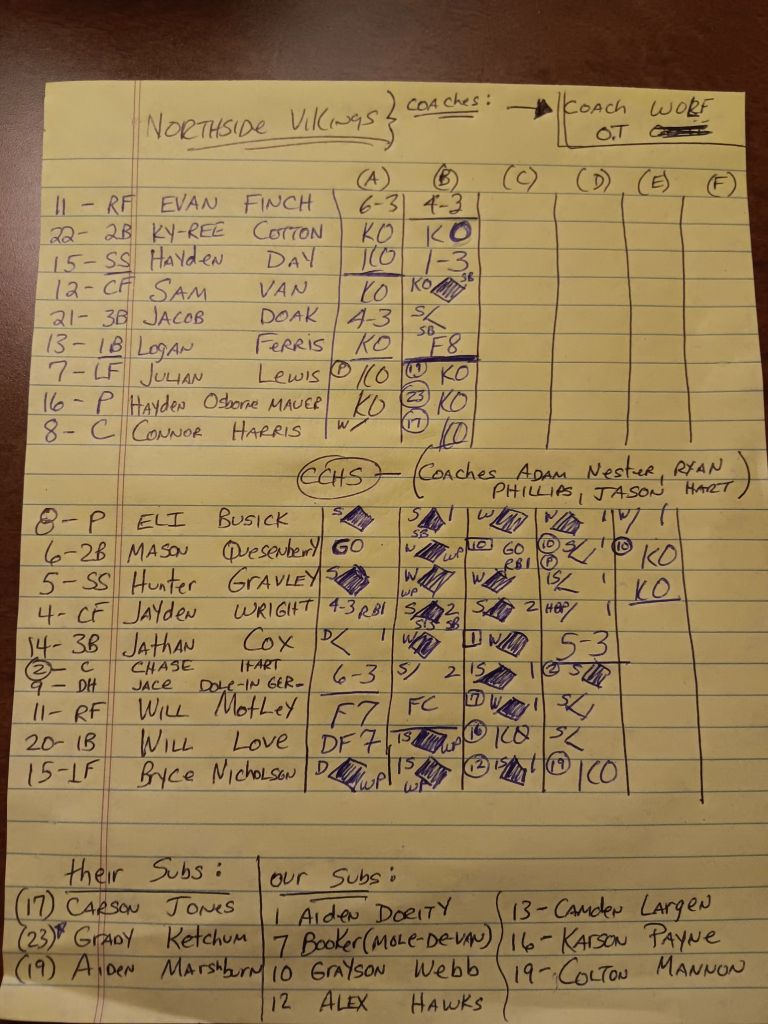 NORTHSIDE VIKINGS } COACHES: → COACH WOLF
O.T
(A) (B) (C) (D) (E) (F)
11 - RF EVAN FINCH 6-3 4-3
22 - 2B KY-REE COTTON KO KO
15 - SS HAYDEN DAY KO 1-3
12 - CF SAM VAN KO KO SB
21 - 3B JACOB DOAK 4-3 S SB
13 - 1B LOGAN FERRIS KO F8
7 - LF JULIAN LEWIS (P) KO (19) KO
16 - P HAYDEN OSBORNE MAUER KO (23) KO
8 - C CONNOR HARRIS W (17) KO
CCHS - (COACHES ADAM NESTER, RYAN
PHILLIPS, JASON HART)
8 - P ELI BUSICK S S 1 SB W W 1 W 1
6 - 2B MASON QUESENBERRY GO W WP 10 GO RBI (10) (P) S 1 (10) KO
5 - SS HUNTER GRAVLEY S W WP W 1S 1 KO
4 - CF JAYDEN WRIGHT 4-3 RBI S 2 SB SB S 2 HBP 1
14 - 3B JATHAN COX D 1 W 1 W 5-3
(2) - C CHASE HART 6-3 S 2 1S 1 (2) S
9 - DH JACE DOLE-IN GER-
11 - RF WILL MOTLEY F7 FC (7) W 1 S 1
20 - 1B WILL LOVE DF7 1S WP (16) KO S
15 - LF BRYCE NICHOLSON D WP 1S WP (12) 1S 1 (19) KO
their Subs: our Subs:
(17) CARSON JONES 1 AIDEN DORITY 13 - CAMDEN LARGEN
(23) GRADY KETCHUM 7 BOOKER (MOLE-DE-VAN) 16 - KARSON PAYNE
(19) AIDEN MARSHBURN 10 GRAYSON WEBB 19 - COLTON MANNON
12 ALEX HAWKS